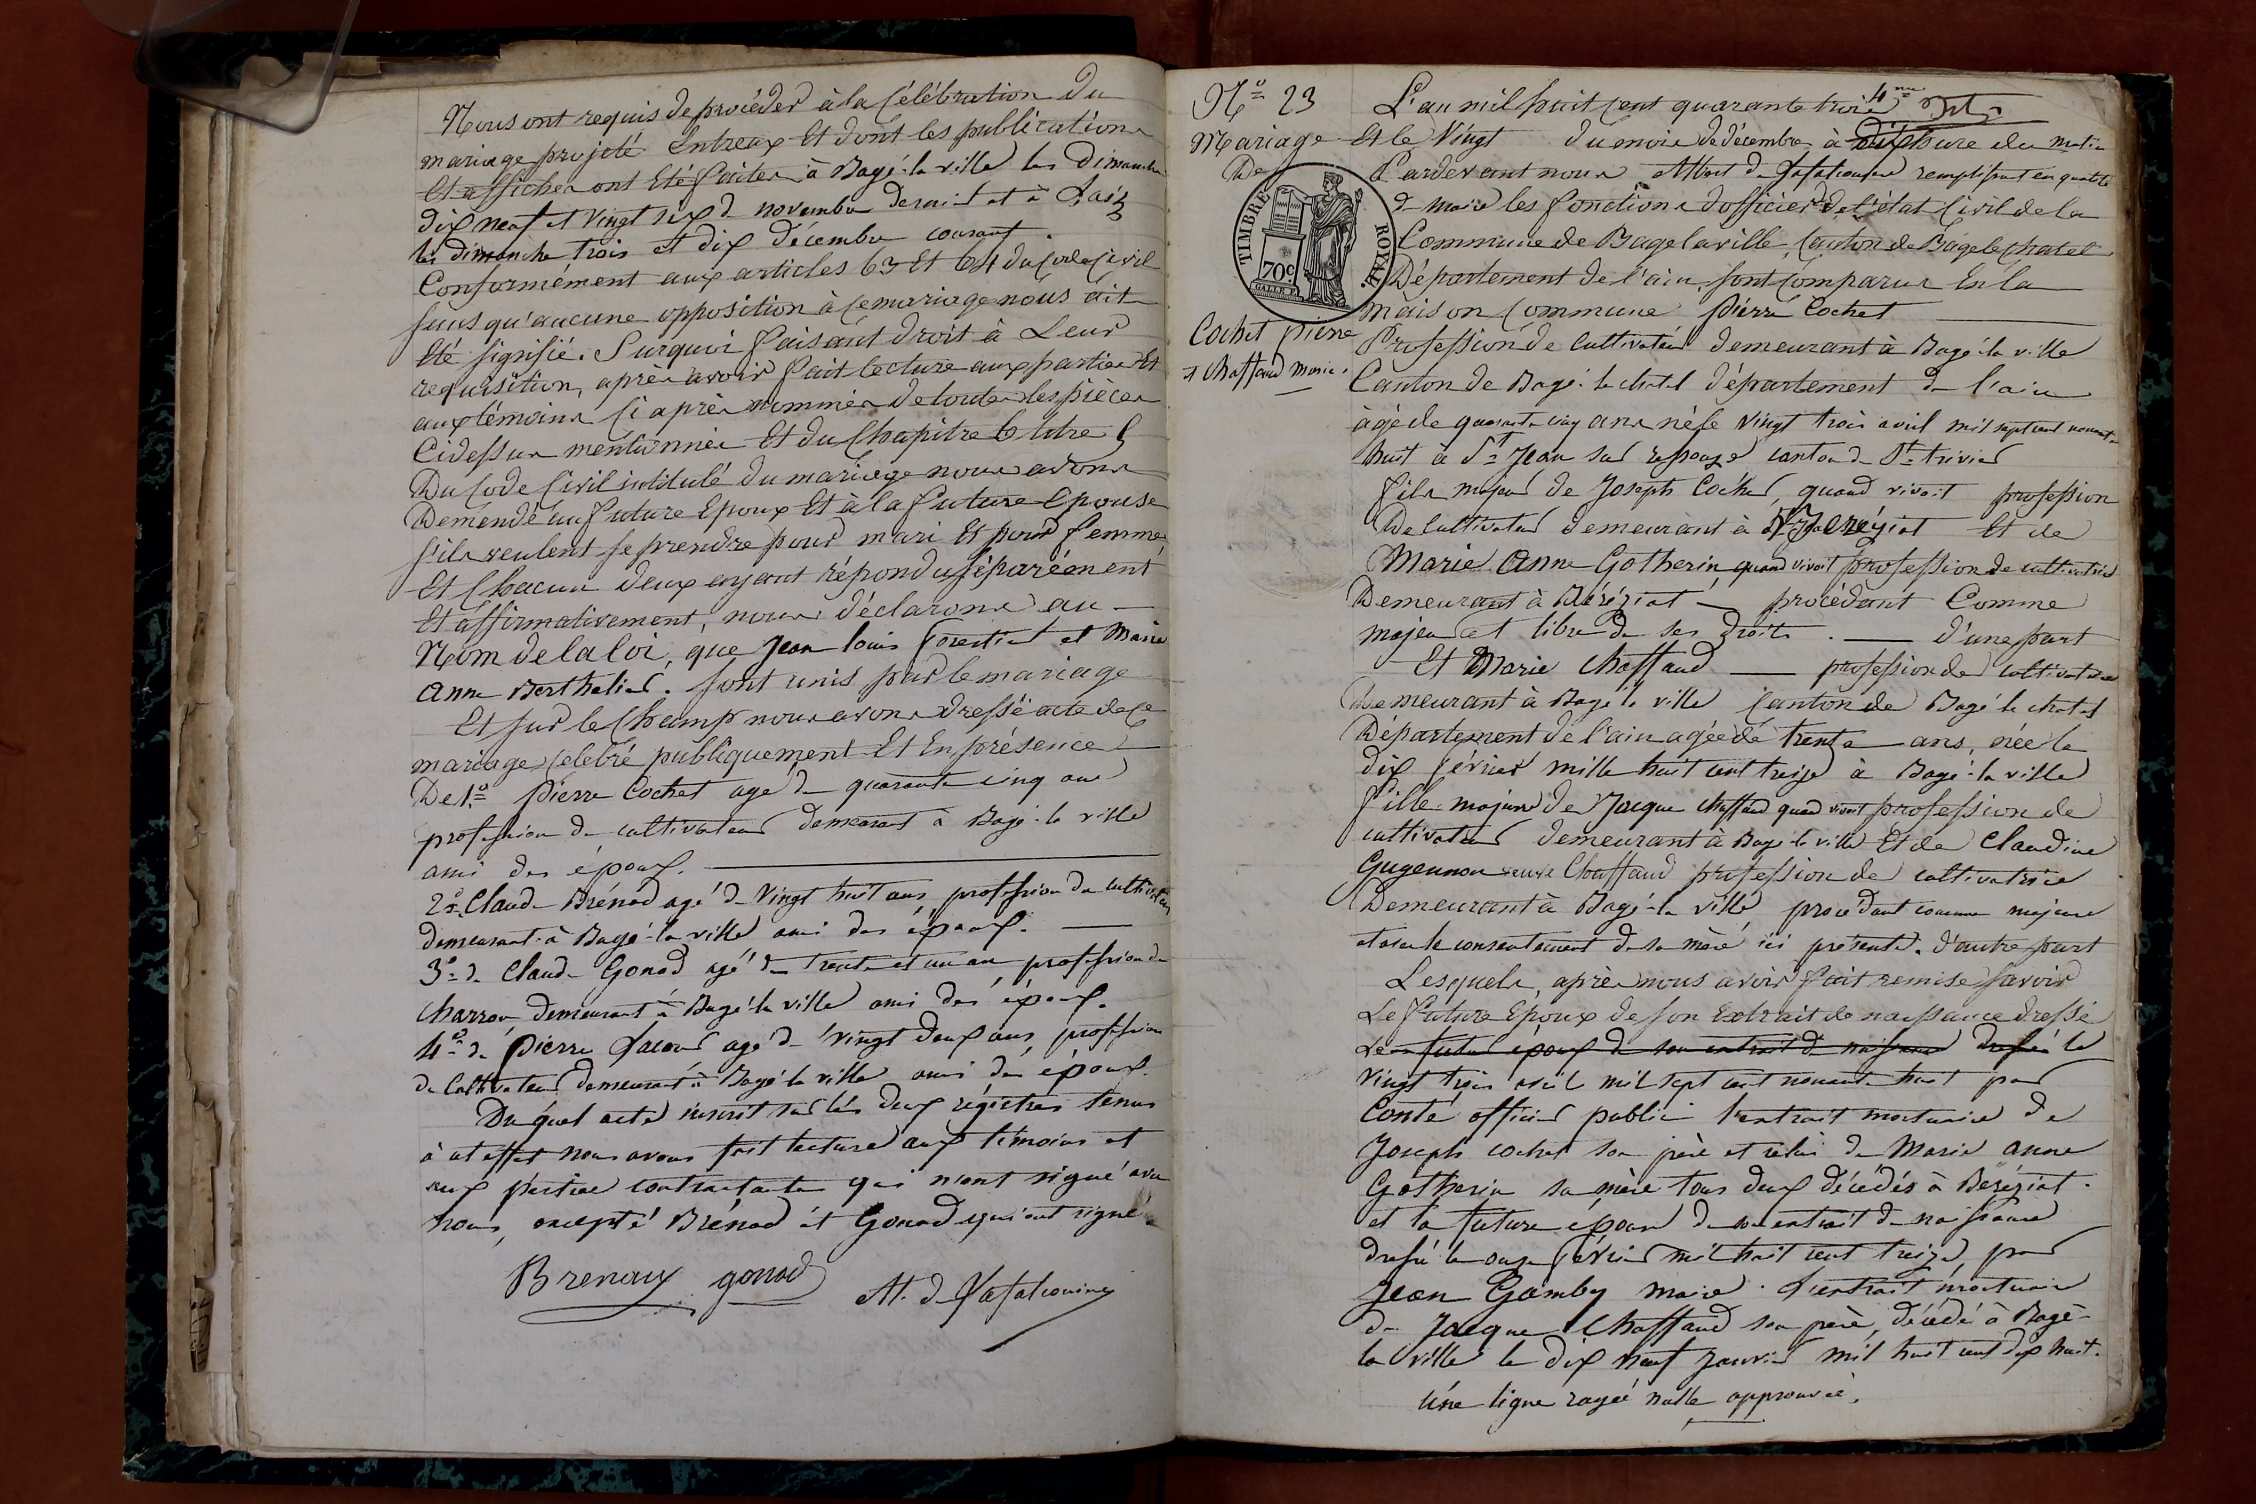 Nous ont requis de procéder à la Célébration du
mariage projeté Entreaux Et dont les publications
Et affiches ont Eté faites à Bagé-la ville les dimanches
dix neuf et vingt six de novembre dernier et à Laiz
les dimanche trois et dix décembre courant.
Conformément aux articles 63 Et 64 du Code Civil
sans qu'aucune opposition à ce mariage nous ait
Eté signifié. Surquoi faisant droit à Leur
requisition, après avoir fait lecture aux parties Et
aux témoins Ci après nommés de toutes les pièces
Cidessus mentionnées Et du Chapitre 6 titre 5
Du Code Civil intitulé du mariage nous avons
Demendé au future Epoux Et à la future Epouse
s'ils veulent se prendre pour mari Et pour femme
Et Chacun deux ayant répondu séparément
Et affirmativement, nous déclarons au
Nom de la loi, que Jean louis Forestier et Marie
Anne Berthelier. sont unis par le mariage
Et sur le Champ nous avons dressé acte de ce
mariage Celébré publiquement Et En présence
De 1º Pierre Cochet agé de quarante cinq ans
profession de cultivateur demeurant à Bagé-la ville
ami des époux.
2º Claude Brénod agé de vingt huit ans profession de cultivateur
demeurant à Bagé-la ville ami des époux.
3º de Claude Gonod agé de trente et un an profession de
charron demeurant à Bagé-la ville ami des époux.
4º de Pierre agé de vingt deux ans, profession
de Cultivateur demeurant à Bagé-la ville ami des époux.
Du quel acte inscrit sur les deux régistres tenus
à cet effet nous avons fait lecture aux témoins et
aux parties contractantes qui n'ont signé avec
nous, excepté Brénod et Gonod qui ont signé
Brenoux gonod
Nº 23
Mariage
De
TIMBRE ROYAL.
70c
Cochet pierre
et Chaffaud Marie.
L'an mil huit Cent quarante trois
Et le Vingt du mois de décembre à heure du matin
Pardevant nous Albert de remplissant en qualité
de maire les fonctions d'officier de l'état Civil de la
Commune de Bagé la ville, Canton de Bagé le Chatel
Département de l'ain, sont Comparus En la
maison Commune Pierre Cochet
Profession de Cultivateur demeurant à Bagé-la ville
Canton de Bagé-le chatel département de l'ain
agé de quarante cinq ans né le vingt trois avril mil sept cent nonante
huit à St Jean sur reyssouze canton de St trivier
fils majeur de Joseph Cochet, quand vivait profession
De Cultivateur demeurant à Béréziat Et de
Marie Anne Gotherin quand vivait profession de cultivatrice
Demeurant à Béréziat procédant Comme
majeur et libre de ses droits. d'une part
Et Marie Chaffaud profession de cultivatrice
Demeurant à Bagé la ville Canton de Bagé le chatel
Département de l'ain agée de trente ans, née le
dix février mille huit cent treize à Bagé-la ville
fille majeure de Jacque Chaffaud quand vivait profession de
cultivateur demeurant à Bagé-la ville Et de Claudine
Gugeunon veuve Chaffaud profession de cultivatrice
Demeurant à Bagé-la ville procédant comme majeure
et avec le consentement de sa mère ici présente. d'autre part
Lesquels, après nous avoir fait remise savoir
Le future Epoux de son Extrait de naissance dressé
Le futur époux de son extrait de naissance dressé le
vingt trois avril mil sept cent nonante huit par
Conté officier public l'extrait mortuaire de
Joseph cochet son père et celui de Marie anne
Gotherin sa mère tous deux décédés à Béréziat.
et la future épouse de son extrait de naissance
dressé le onze février mil huit cent treize, par
Jean Gamby maire. l'extrait mortuaire
de Jacque Chaffaud son père, décédé à Bagé-
la ville le dix neuf Janvier mil huit cent dix huit.
Une ligne rayée nulle approuvée.